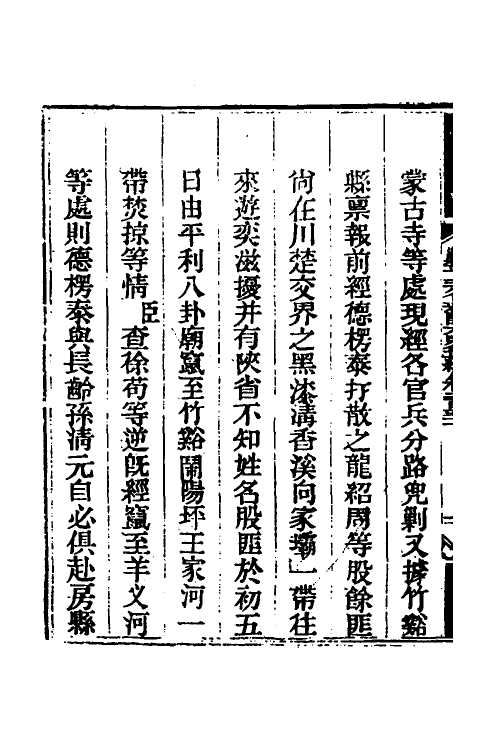 蒙古寺等處現經各官兵分路兜剿又據竹谿
縣稟報前經德楞泰打散之龍紹周等股餘匪
尙在川楚交界之黑漆溝香溪向家壩一帶往
來遊奕滋擾并有陝省不知姓名股匪於初五
日由平利八卦廟竄至竹谿鬧陽坪王家河一
帶焚掠等情臣查徐苟等逆旣經竄至羊义河
等處則德楞泰與長齡孫清元自必俱赴房縣